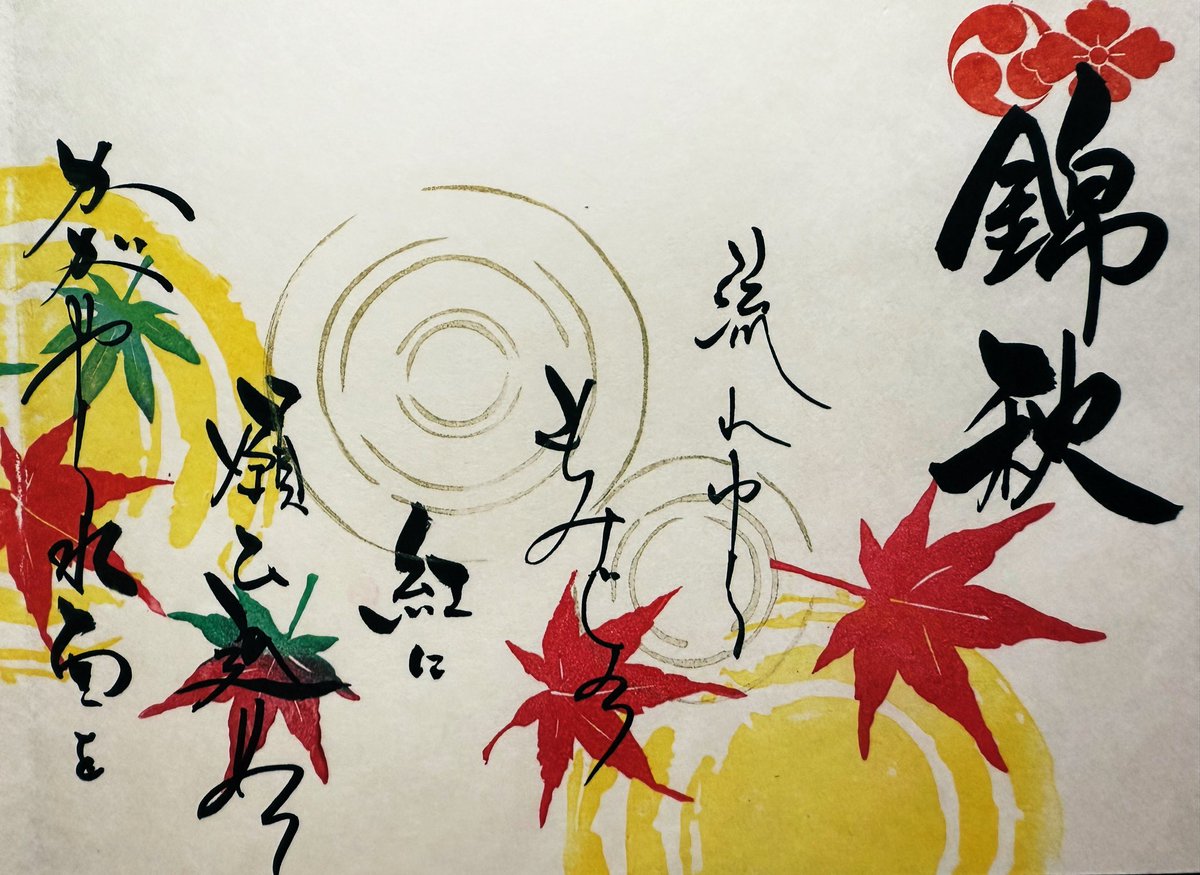 錦秋
流れゆく
もみじの
紅に
願ひ込め
かがやく水面を